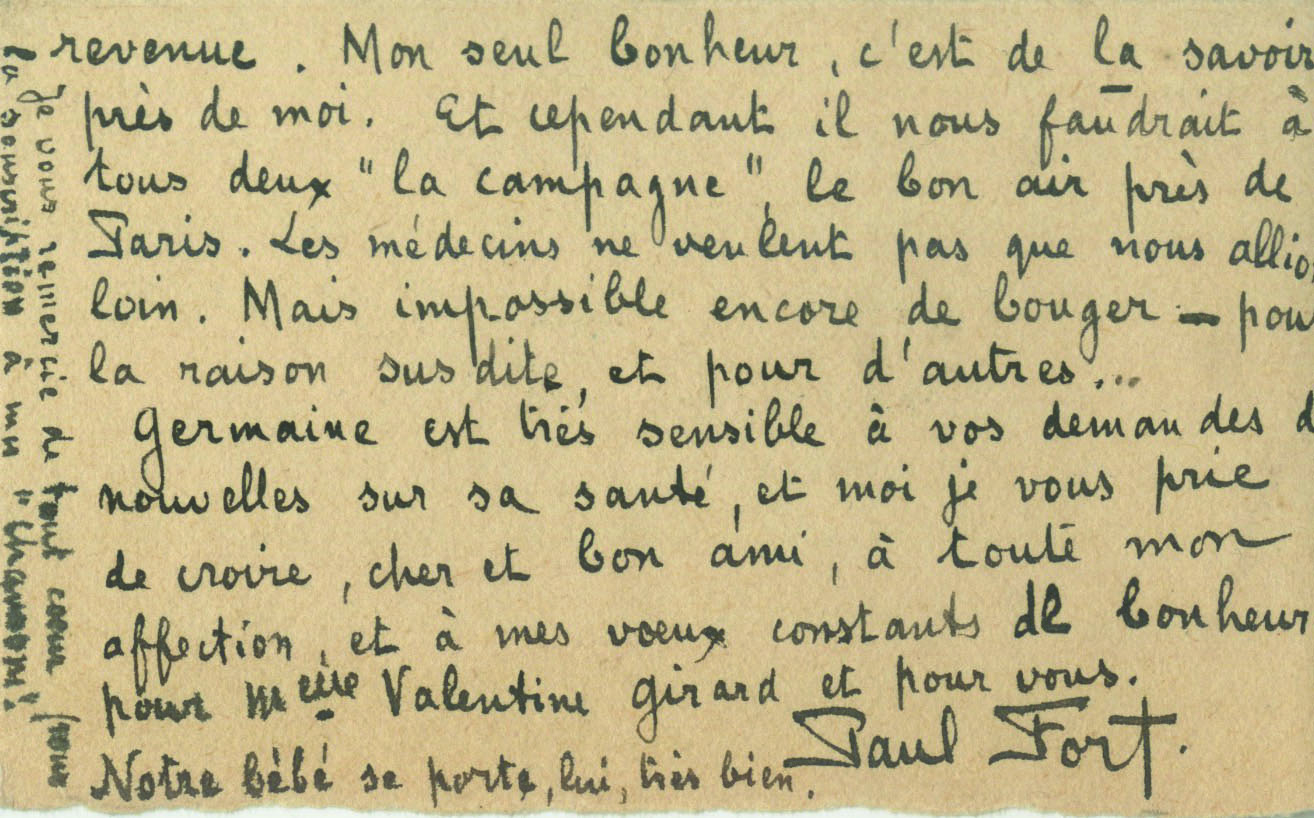 revenue. Mon seul bonheur, c'est de la savoir
près de moi. Et cependant il nous faudrait à
tous deux "la campagne", le bon air près de
Paris. Les médecins ne veulent pas que nous allio
loin. Mais impossible encore de bouger — pour
la raison susdite, et pour d'autres...
Germaine est très sensible à vos demandes d
nouvelles sur sa santé, et moi je vous prie
de croire, cher et bon ami, à toute mon
affection, et à mes vœux constants de bonheur
pour Melle Valentine Girard et pour vous.
Paul Fort.
Notre bébé se porte, lui, très bien.
Je vous remercie de tout cœur pour
la souscription à mn "Chansons"!